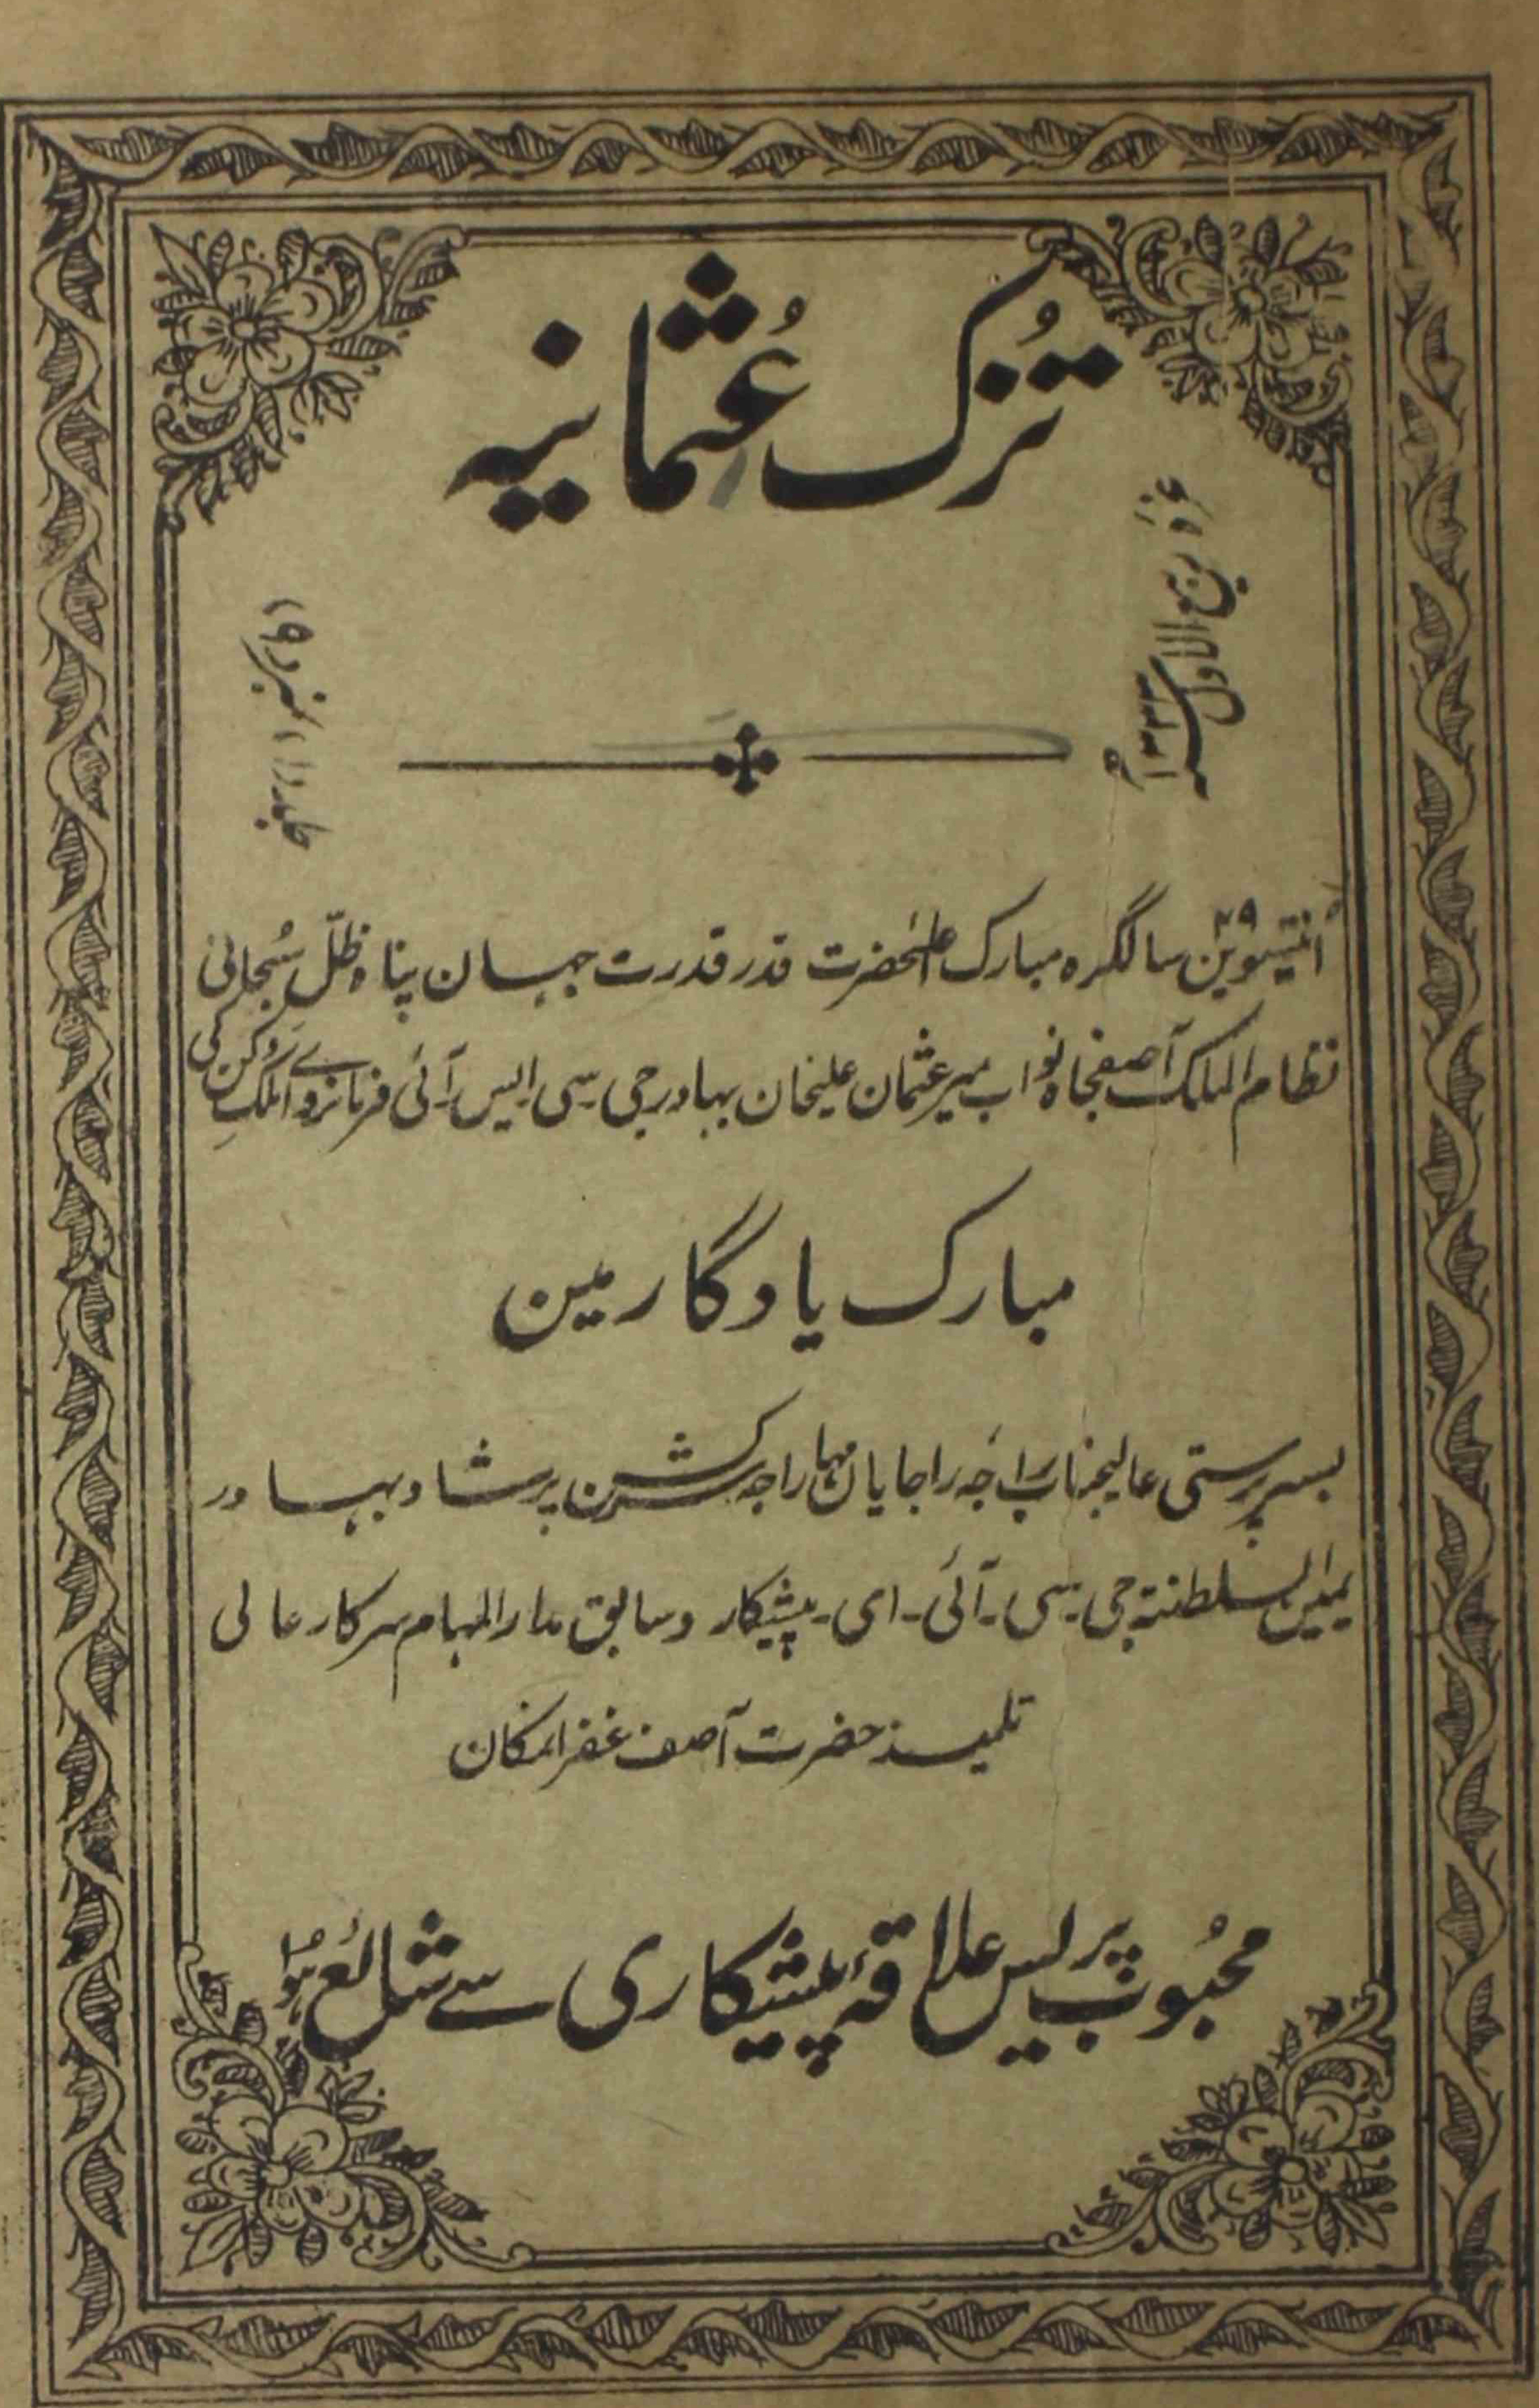 تُزک عُثمانیہ
غرہ ربیع الاول سنہ ۱۳۳۳ھ
جلد (۱) نمبر (۹)
اُنتیسوین ۲۹ سالگرہ مبارک اعلٰحضرت قدر قدرت جہان پناہ ظلّ سُبحانی
نظام الملک آصفجاہ نواب میر عثمان علیخان بہادر جی سی ایس آئی فرمانروائے ملکِ دکن کی
مبارک یادگار مین
بسر پرستی عالیجناب راجہ راجایان مہاراجہ سر کشن پرشاد بہادر
یمین السلطنتہ جی ۔ سی ۔ آئی ۔ ای ۔ پیشکار و سابق مدار المہام سرکار عالی
تلمیذ حضرت آصف غفرانمکان
محبُوب پریس علاقۂ پیشکاری سے شائع ہُوا